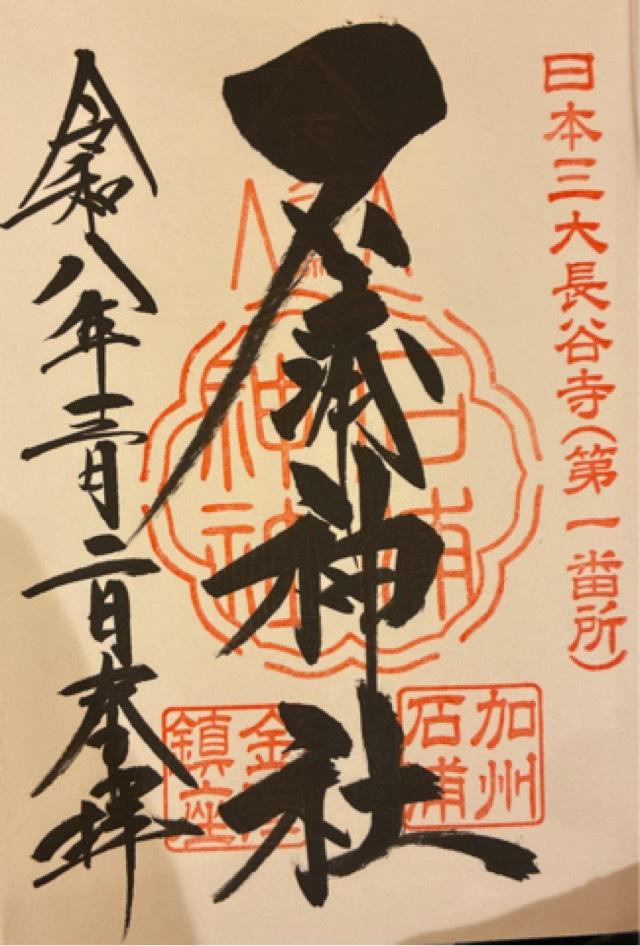 日本三大長谷寺(第一番所)
石浦神社
石浦
神社
加州
石浦
金
鎮座
令和八年三月二日奉拝